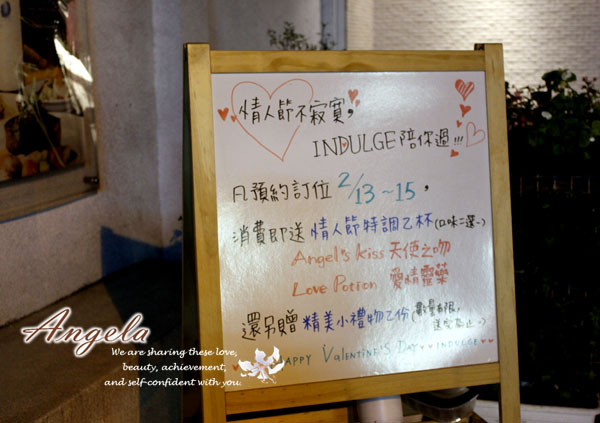 情人節不寂寞，
INDULGE陪你過!!!
凡預約訂位 2/13~15，
消費即送 情人節特調乙杯(口味二選一)
Angel's Kiss 天使之吻
Love Potion 愛情靈藥
還另贈 精美小禮物乙份(數量有限,
送完為止。)
HAPPY VALENTINE'S DAY INDULGE
Angela
We are sharing these love,
beauty, achievement,
and self-confident with you.